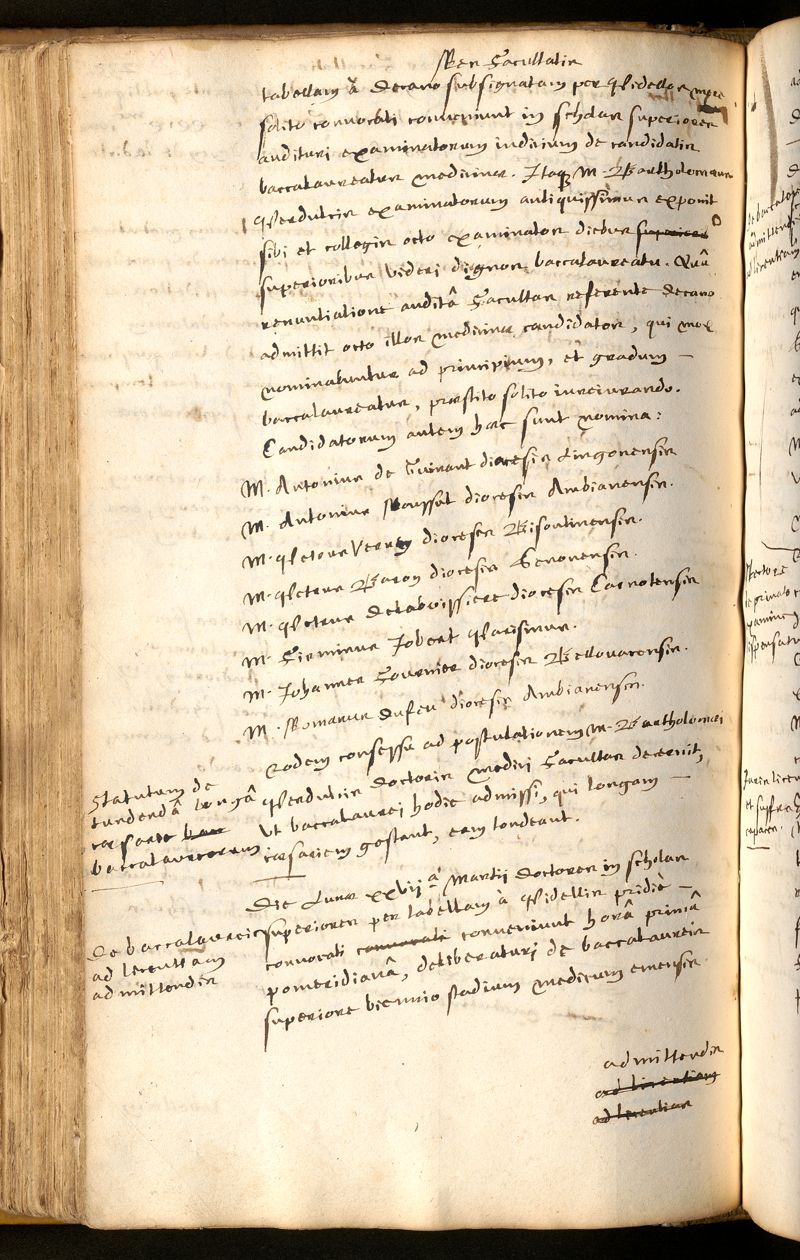 Res Facultatis
tabellam à Decano subsignatam per Bidellos more
solito convocati conveniunt in scholas superiores
audituri examinatorum iudicium de candidatis
baccalaureatus medicinae. Itaq; M. Bartholomaeus
Perdulcis examinatorum antiquissimus exponit
sibi et collegis octo examinatos diebus superiori
superioribus videri dignos baccalaureatu. Quâ
renuntiatione auditâ Facultas referente decano
admittit octo illos medicinae candidatos, qui mox
nominabuntur ad principium, et gradum —
baccalaureatus, praestito solito iureiurando.
Candidatorum autem haec sunt nomina:
M. Antonius de diocesis Lingonensis
M. Antonius Roussel diocesis Ambianensis.
M. Petrus diocesis Bisontinensis.
M. Petrus Baron diocesis Senonensis.
M. Petrus Delaboissiere diocesis Carnotensis
M. Firminus Jobert Parisinus.
M. Johannes Fournier diocesis Bellovacensis.
M. Romanus Dufeu diocesis Ambianensis.
Eodem consessu ad postulationem M. Bartholomaei
Perdulcis doctoris medici Facultas decernit,
Ut baccalaurei hodie admissi, qui longam —
caesariem gestant, eam tondeant.
Statutum de
tundendâ longâ
caesarie bac
baccalaureorum
Die Lunae xxvijª Martij Doctores in scholas
superiores per tabellam à Bidellis pridiè —
convocati convocati conveniunt horâ primâ
pomeridianâ, deliberaturi de baccalaureis
superiore biennio stadium medicum emensis
De baccalaureis
ad licentiam
admittendis
admittendis
ad licentiam
ad licentiam